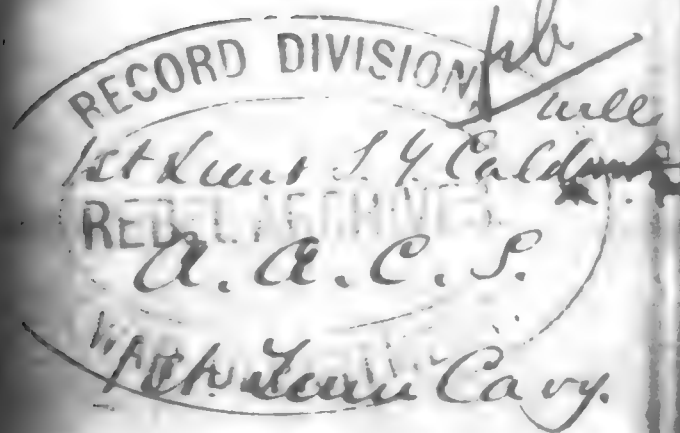 RECORD DIVISION
1st Lieut S. Y. Caldwell
REBEL ARCHIVES
A. A. C. S.
WAR
Tenn Cavy.